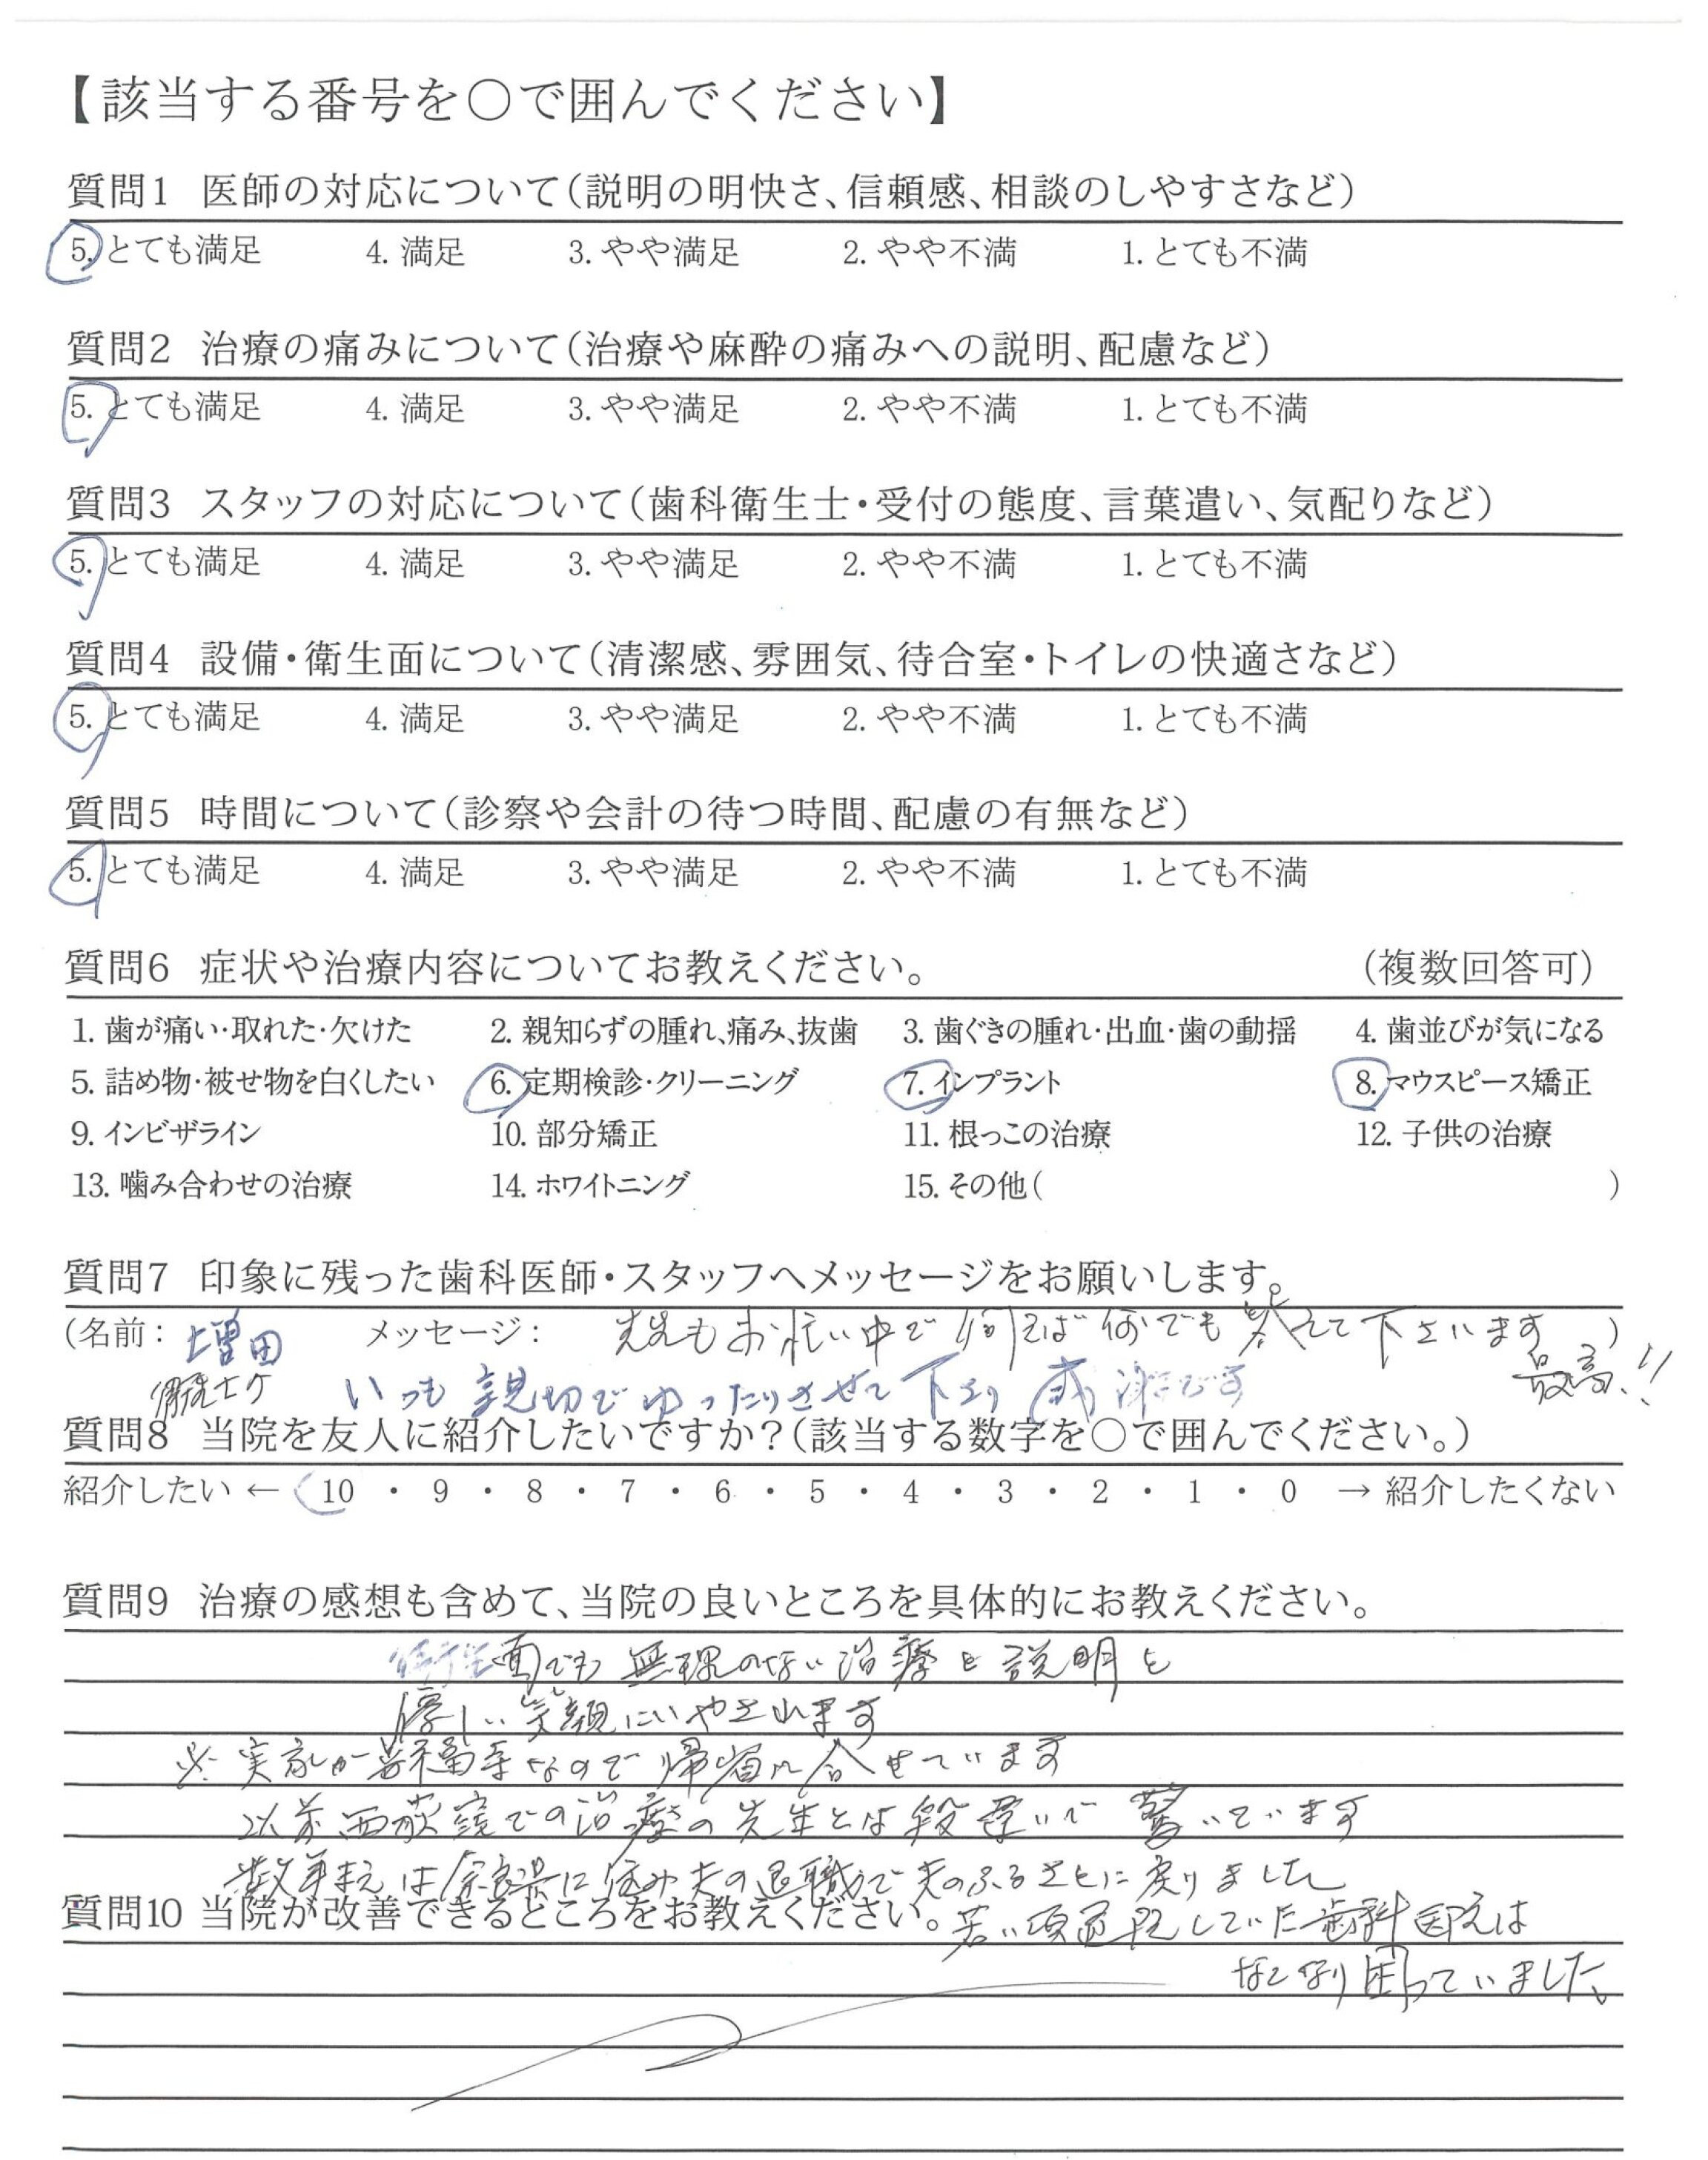 【該当する番号を〇で囲んでください】
質問1 医師の対応について(説明の明快さ、信頼感、相談のしやすさなど)
5. とても満足 4. 満足 3. やや満足 2. やや不満 1. とても不満
質問2 治療の痛みについて(治療や麻酔の痛みへの説明、配慮など)
5. とても満足 4. 満足 3. やや満足 2. やや不満 1. とても不満
質問3 スタッフの対応について(歯科衛生士・受付の態度、言葉遣い、気配りなど)
5. とても満足 4. 満足 3. やや満足 2. やや不満 1. とても不満
質問4 設備・衛生面について(清潔感、雰囲気、待合室・トイレの快適さなど)
5. とても満足 4. 満足 3. やや満足 2. やや不満 1. とても不満
質問5 時間について(診察や会計の待つ時間、配慮の有無など)
5. とても満足 4. 満足 3. やや満足 2. やや不満 1. とても不満
質問6 症状や治療内容についてお教えください。 (複数回答可)
1. 歯が痛い・取れた・欠けた 2. 親知らずの腫れ、痛み、抜歯 3. 歯ぐきの腫れ・出血・歯の動揺 4. 歯並びが気になる
5. 詰め物・被せ物を白くしたい 6. 定期検診・クリーニング 7. インプラント 8. マウスピース矯正
9. インビザライン 10. 部分矯正 11. 根っこの治療 12. 子供の治療
13. 噛み合わせの治療 14. ホワイトニング 15. その他( )
質問7 印象に残った歯科医師・スタッフへメッセージをお願いします。
(名前: 増田 メッセージ: 先生もお忙い中で 何でも 答えて下さいます )
最高!!
いつも親切でゆったりさせて下さり 感謝です
質問8 当院を友人に紹介したいですか?(該当する数字を〇で囲んでください。)
紹介したい ← 10 ・ 9 ・ 8 ・ 7 ・ 6 ・ 5 ・ 4 ・ 3 ・ 2 ・ 1 ・ 0 → 紹介したくない
質問9 治療の感想も含めて、当院の良いところを具体的にお教えください。
衛生面でも 無理のない治療と説明と
優しい笑顔にいやされます
※ 実家が なので 帰省に合せています
以前 での治療の先生とは段違いで 驚いています
数年まえは奈良県に住み夫の退職で夫のふるさとに戻りました
質問10 当院が改善できるところをお教えください。
若い頃 していた歯科医えは
なくなり困っていました、